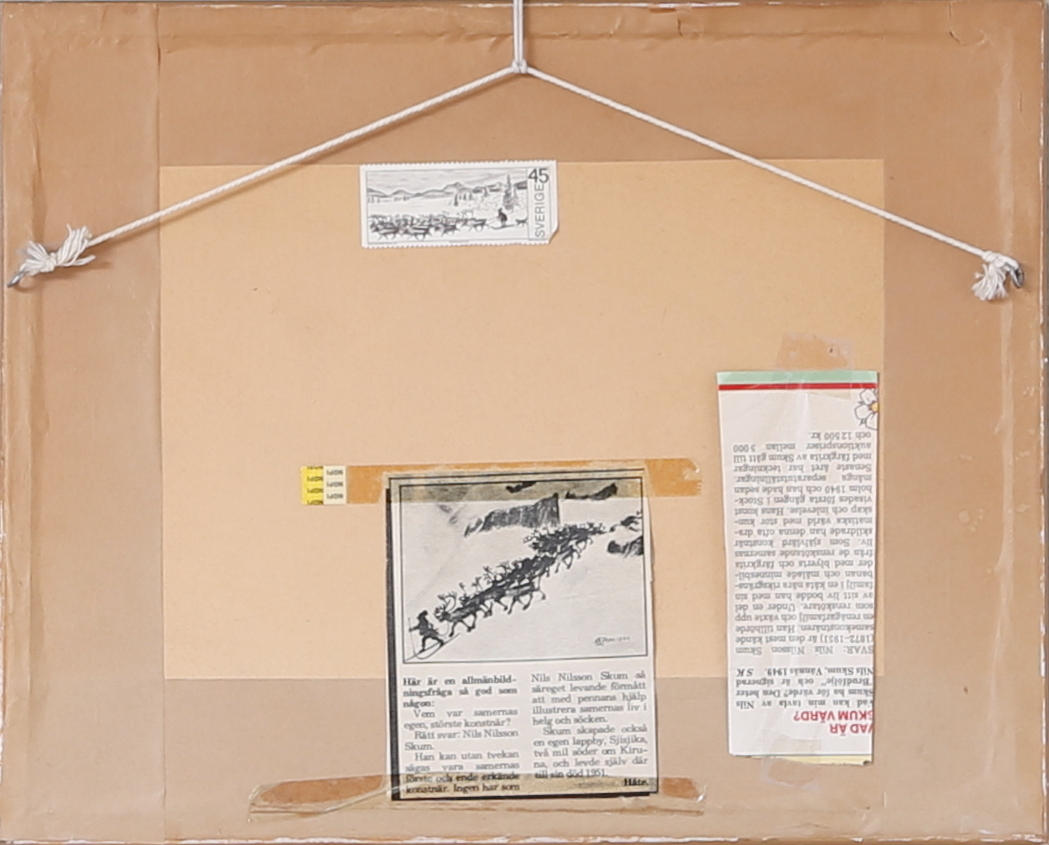 45
SVERIGE
NOPI
NOPI
NOPI
NOPI
NOPI
NOPI
Här är en allmänbild-
ningsfråga så god som
någon:
Vem var samernas
egen, störste konstnär?
Rätt svar: Nils Nilsson
Skum.
Han kan utan tvekan
sägas vara samernas
förste och ende erkände
konstnär. Ingen har som
Nils Nilsson Skum så
säreget levande förmått
att med pennans hjälp
illustrera samernas liv i
helg och söcken.
Skum skapade också
en egen lappby, Sjisjka,
två mil söder om Kiru-
na, och levde själv där
till sin död 1951.
Håte.
VAD ÄR
SKUM VÄRD?
Vad kan min tavla av Nils
Skum ha för värde? Den heter
"Brudfölje" och är signerad
Nils Skum, Vännäs 1949. S K
SVAR: Nils Nilsson Skum
(1872–1951) är den mest kände
samekonstnären. Han tillhörde
en renägarfamilj och växte upp
som renskötare. Under en del
av sitt liv bodde han med sin
familj i en kåta nära riksgräns-
banan och målade minnesbil-
der med blyerts och färgkrita
från de renskötande samernas
liv. Som självlärd konstnär
skildrade han denna ofta dra-
matiska värld med stor kun-
skap och inlevelse. Hans konst
visades första gången i Stock-
holm 1940 och han hade sedan
många separatutställningar.
Senaste året har teckningar
med färgkrita av Skum gått till
auktionspriser mellan 3 000
och 12 500 kr.